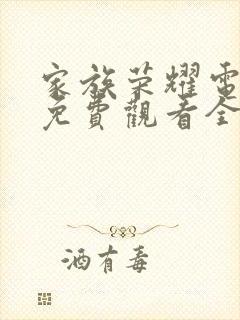 家族荣耀電
免費觀看全
酒有毒